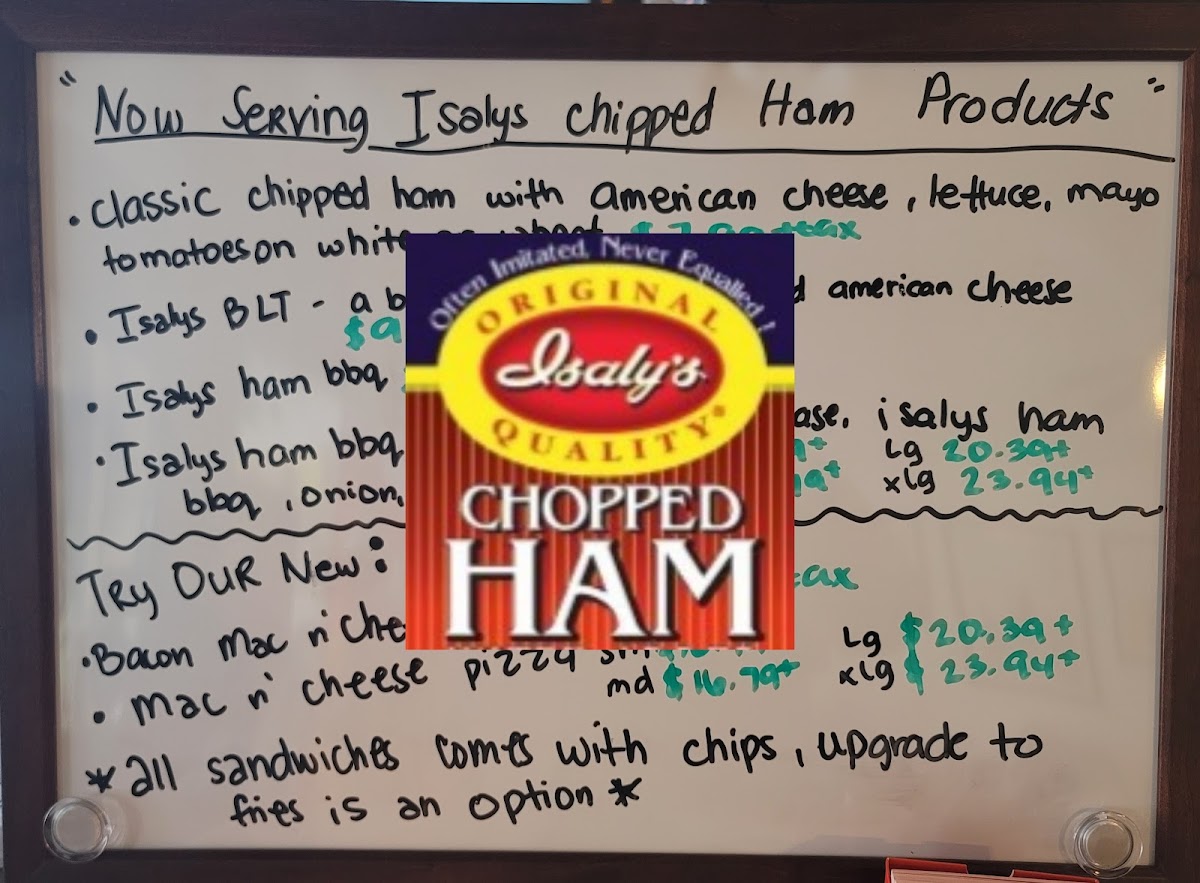 "Now Serving Isalys chipped Ham Products"
• classic chipped ham with american cheese, lettuce, mayo
tomatoes on white
• Isalys BLT - a american cheese
• Isalys ham bbq
• Isalys ham bbq isalys ham
bbq, onion, Lg 20.39+
xlg 23.94+
Often Imitated, Never Equalled!
ORIGINAL
Isaly's
QUALITY
CHOPPED
HAM
Try OUR New:
• Bacon Mac n' tax
• mac n' cheese pizza sm Lg $20.39+
md $16.79+ xLg $23.94+
*all sandwiches comes with chips, upgrade to
fries is an option*